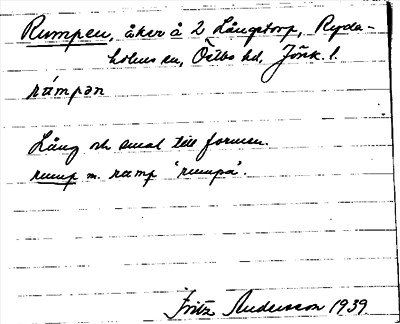 Rumpen, åker å 2 Långstorp, Ryda-
holms sn, Östbo hd, Jönk. l.
rámpən
Lång och smal till formen.
rump m. ramp 'rumpa'.
Fritz Andersson 1939.